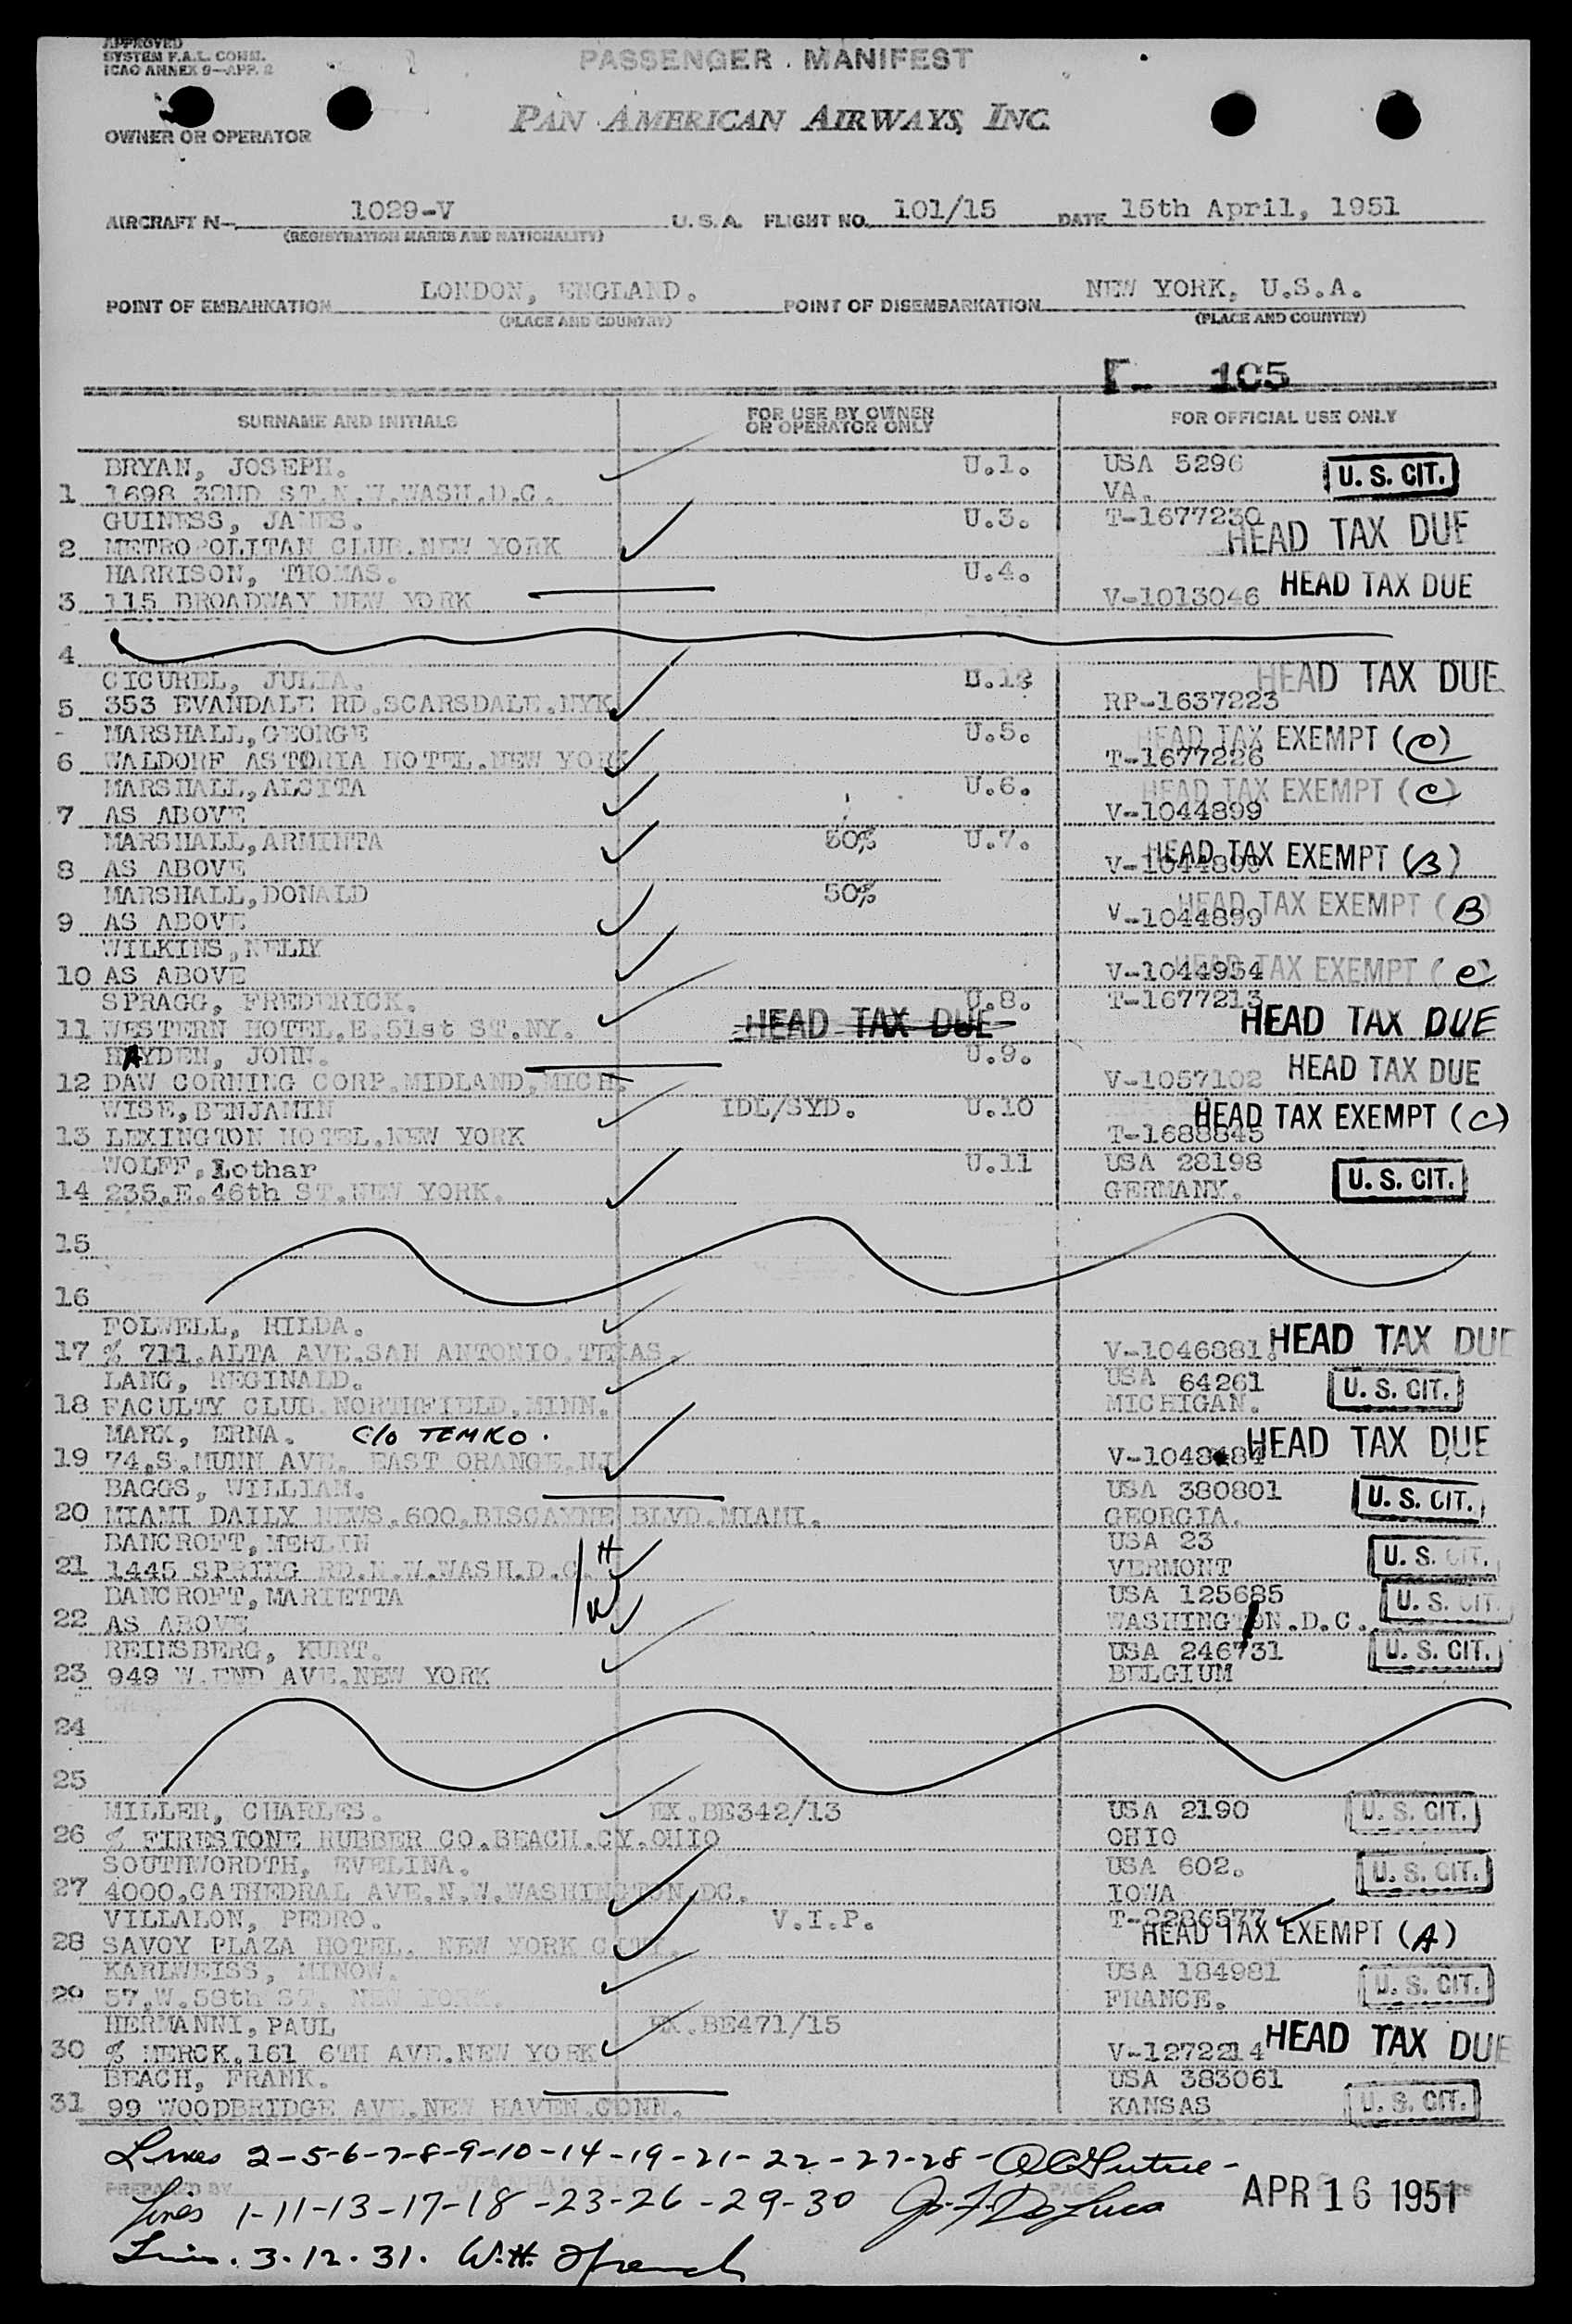 APPROVED
SYSTEM F.A.L. COMM.
ICAO ANNEX 9—APP. 2
PASSENGER MANIFEST
PAN AMERICAN AIRWAYS, INC.
OWNER OR OPERATOR
AIRCRAFT N— 1029-V U.S.A. FLIGHT NO. 101/15 DATE 15th April, 1951
(REGISTRATION MARKS AND NATIONALITY)
POINT OF EMBARKATION LONDON, ENGLAND. POINT OF DISEMBARKATION NEW YORK, U.S.A.
(PLACE AND COUNTRY) (PLACE AND COUNTRY)
105
SURNAME AND INITIALS FOR USE BY OWNER OR OPERATOR ONLY FOR OFFICIAL USE ONLY
BRYAN, JOSEPH. U.1. USA 5296 U. S. CIT.
1 1698 32ND ST.N.W.WASH.D.C. VA.
GUINESS, JAMES. U.3. T-1677230
2 METROPOLITAN CLUB.NEW YORK HEAD TAX DUE
HARRISON, THOMAS. U.4.
3 115 BROADWAY NEW YORK V-1013046 HEAD TAX DUE
4
CICUREL, JULIA. HEAD TAX DUE
5 353 EVANDALE RD.SCARSDALE.NYK RP-1637223
MARSHALL,GEORGE U.5. HEAD TAX EXEMPT (C)
6 WALDORF ASTORIA HOTEL.NEW YORK T-1677226
MARSHALL,ALCITA U.6. HEAD TAX EXEMPT (C)
7 AS ABOVE V-1044899
MARSHALL,ARMINTA 50% U.7. HEAD TAX EXEMPT (B)
8 AS ABOVE V-1044899
MARSHALL,DONALD 50% HEAD TAX EXEMPT (B)
9 AS ABOVE V-1044899
WILKINS,NELLY
10 AS ABOVE V-1044954 HEAD TAX EXEMPT (C)
SPRAGG, FREDERICK. U.8. T-1677213
11 WESTERN HOTEL.E.51st ST.NY. HEAD TAX DUE HEAD TAX DUE
HAYDEN, JOHN. U.9.
12 DAW CORNING CORP.MIDLAND,MICH. V-1057102 HEAD TAX DUE
WISE,BENJAMIN IDL/SYD. U.10 HEAD TAX EXEMPT (C)
13 LEXINGTON HOTEL.NEW YORK T-1688845
WOLFF,Lothar U.11 USA 28198
14 235.E.46th ST.NEW YORK. GERMANY. U. S. CIT.
15
16
FOLWELL, HILDA.
17 % 711.ALTA AVE.SAN ANTONIO.TEXAS. V-1046881. HEAD TAX DUE
LANG, REGINALD. USA 64261 U. S. CIT.
18 FACULTY CLUB.NORTHFIELD.MINN. MICHIGAN.
MARK, ERNA. C/o TEMKO. HEAD TAX DUE
19 74.S.MUNN AVE. EAST ORANGE.NJ
BAGGS, WILLIAM. USA 380801 U. S. CIT.
20 MIAMI DAILY NEWS.600.BISCAYNE BLVD.MIAMI. GEORGIA.
BANCROFT,MERLIN H USA 23 U. S. CIT.
21 1445 SPRING RD.N.W.WASH.D.C. VERMONT
BANCROFT,MARIETTA W USA 125685 U. S. CIT.
22 AS ABOVE WASHINGTON.D.C.
REINSBERG, KURT. USA 246731 U. S. CIT.
23 949 W.END AVE.NEW YORK BELGIUM
24
25
MILLER, CHARLES. EX.BE342/13 USA 2190 U. S. CIT.
26 % FIRESTONE RUBBER CO.BEACH.CY.OHIO OHIO
SOUTHWORDTH, EVELINA. USA 602. U. S. CIT.
27 4000.CATHEDRAL AVE.N.W.WASHINGTON.DC. IOWA
VILLALON, PEDRO. V.I.P. T-2286577
28 SAVOY PLAZA HOTEL. NEW YORK CITY. HEAD TAX EXEMPT (A)
KARLWEISS, MINOW. USA 184981 U. S. CIT.
29 57.W.58th ST. NEW YORK. FRANCE.
HERMANNI,PAUL EX.BE471/15 HEAD TAX DUE
30 % MERCK.161 6TH AVE.NEW YORK V-1272214
BEACH, FRANK. USA 383061
31 99 WOODBRIDGE AVE.NEW HAVEN.CONN. KANSAS U. S. CIT.
Lines 2-5-6-7-8-9-10-14-19-21-22-27-28-
PREPARED BY PAGE
Lines 1-11-13-17-18-23-26-29-30 Jo. F. De Luca APR 16 1951
Lines. 3.12.31. W.H. French